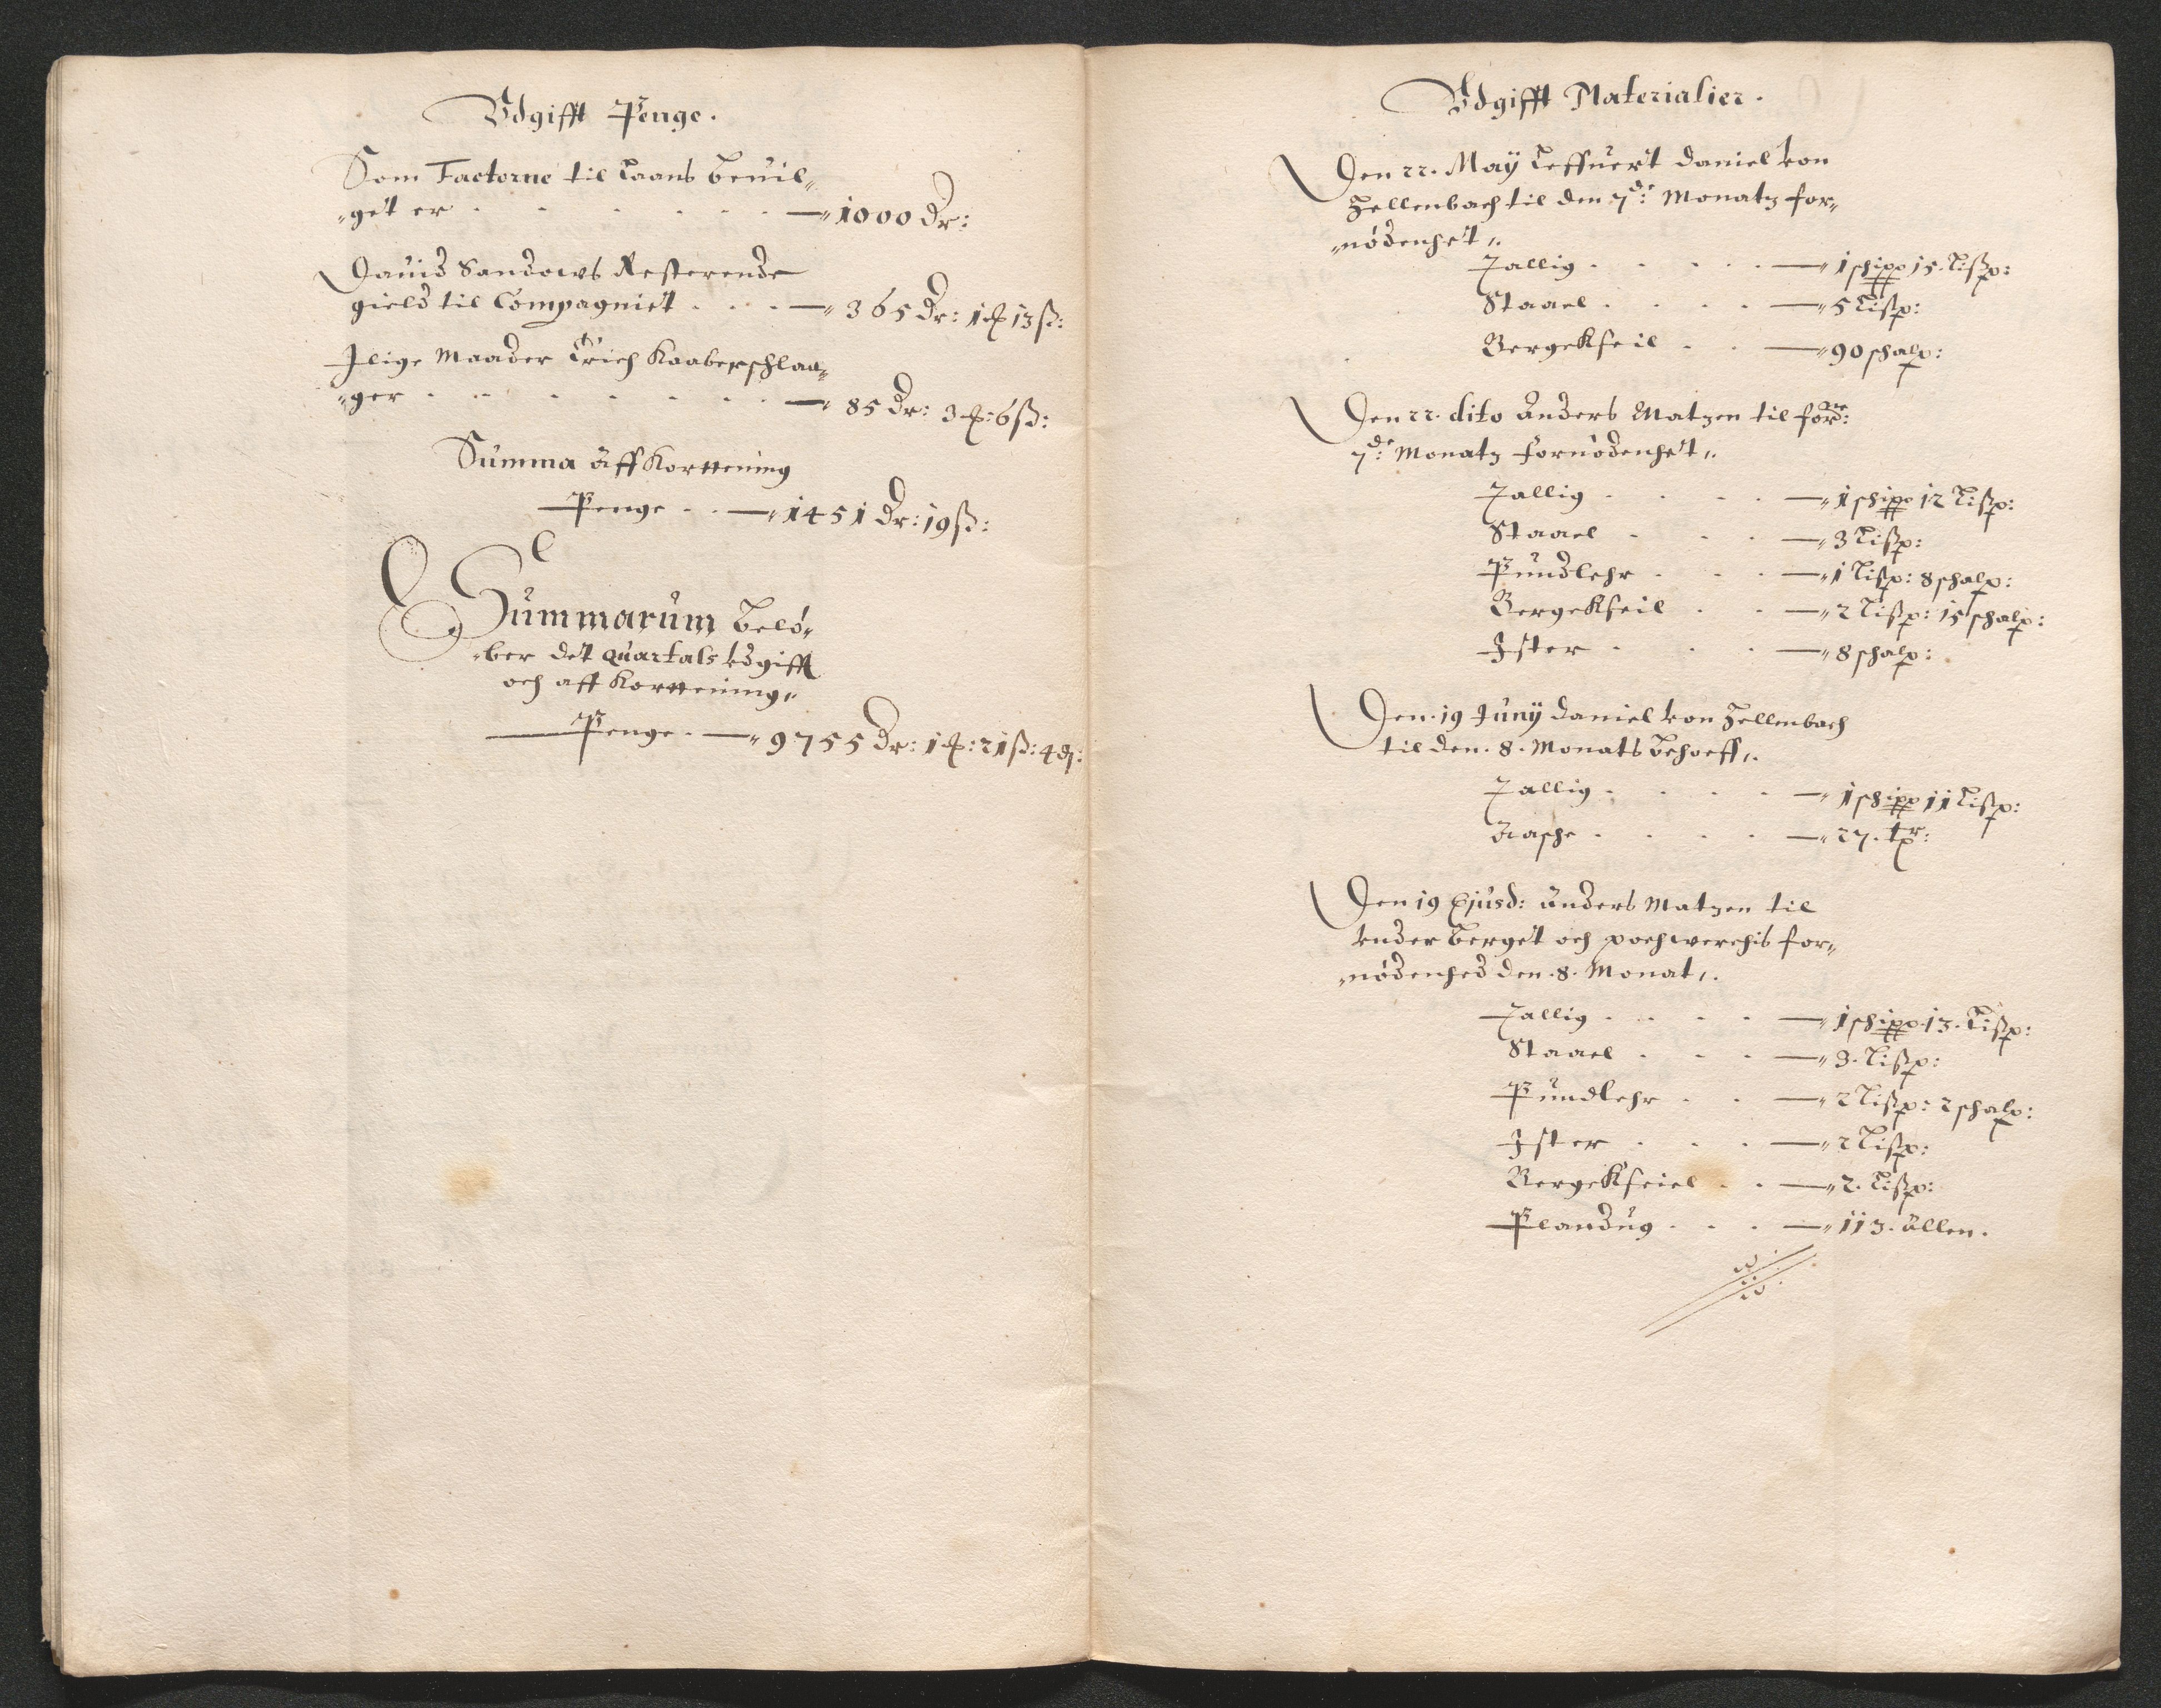 Vdgifft Penge.
Som Factorne til Laans beuil„
„get er . . . . . . —„ 1000 Dr:
Dauid Sandows Resterende
gield til Compagniet . . . —„ 365 Dr: 1 ℔ 13 ß:
Ilige Maader Erich Kaaberschlaa„
„ger . . . . . . . —„ 85 Dr: 3 ℔: 6 ß:
Summa Aff Korttening
Penge . . —„ 1451 Dr: 19 ß:
Summarum belö„
„ber det quartals vdgifft
och aff Korttening„
Penge . —„ 9755 Dr: 1 ℔: 21 ß: 4 ₰:
Vdgifft Materialier.
Den 22. Maÿ Leffuert Daniel von
Zellenbach til den 7de: Monatz for„
„nödenhet„.
Tallig . . . . —„ 1 schipp 15. Lißp:
Staael . . . . —„ 5 Lißp:
Bergekseil . . —„ 90 schalp:
Den 22. dito Anders Matzen til forne:
7de: Monatz fornödenhet„.
Tallig . . . . —„ 1 schipp 12 Lißp:
Staael . . . —„ 3 Lißp:
Pundlehr . . . —„ 1 Lißp: 8 schalp:
Bergekseil . . —„ 2 Lißp: 15 schalp:
Ister . . . —„ 8 schalp:
Den. 19 Junÿ Daniel von Zellenbach
til den. 8. Monats behoeff„.
Tallig . . . . —„ 1 schipp 11 Lißp:
Aaske . . . . —„ 27. tr:
Den 19 Ejusd: Anders Matzen til
vnder berget och pochwerchis for„
„nödenhed den. 8. Monat„.
Tallig . . . . —„ 1 schipp. 13. Lißp:
Staael . . . —„ 3. Lißp:
Pundlehr . . —„ 2 Lißp: 2 schalp:
Ister . . . —„ 2 Lißp:
Bergekseiel . . —„ 2. Lißp:
Plandug . . . —„ 113. Allen.